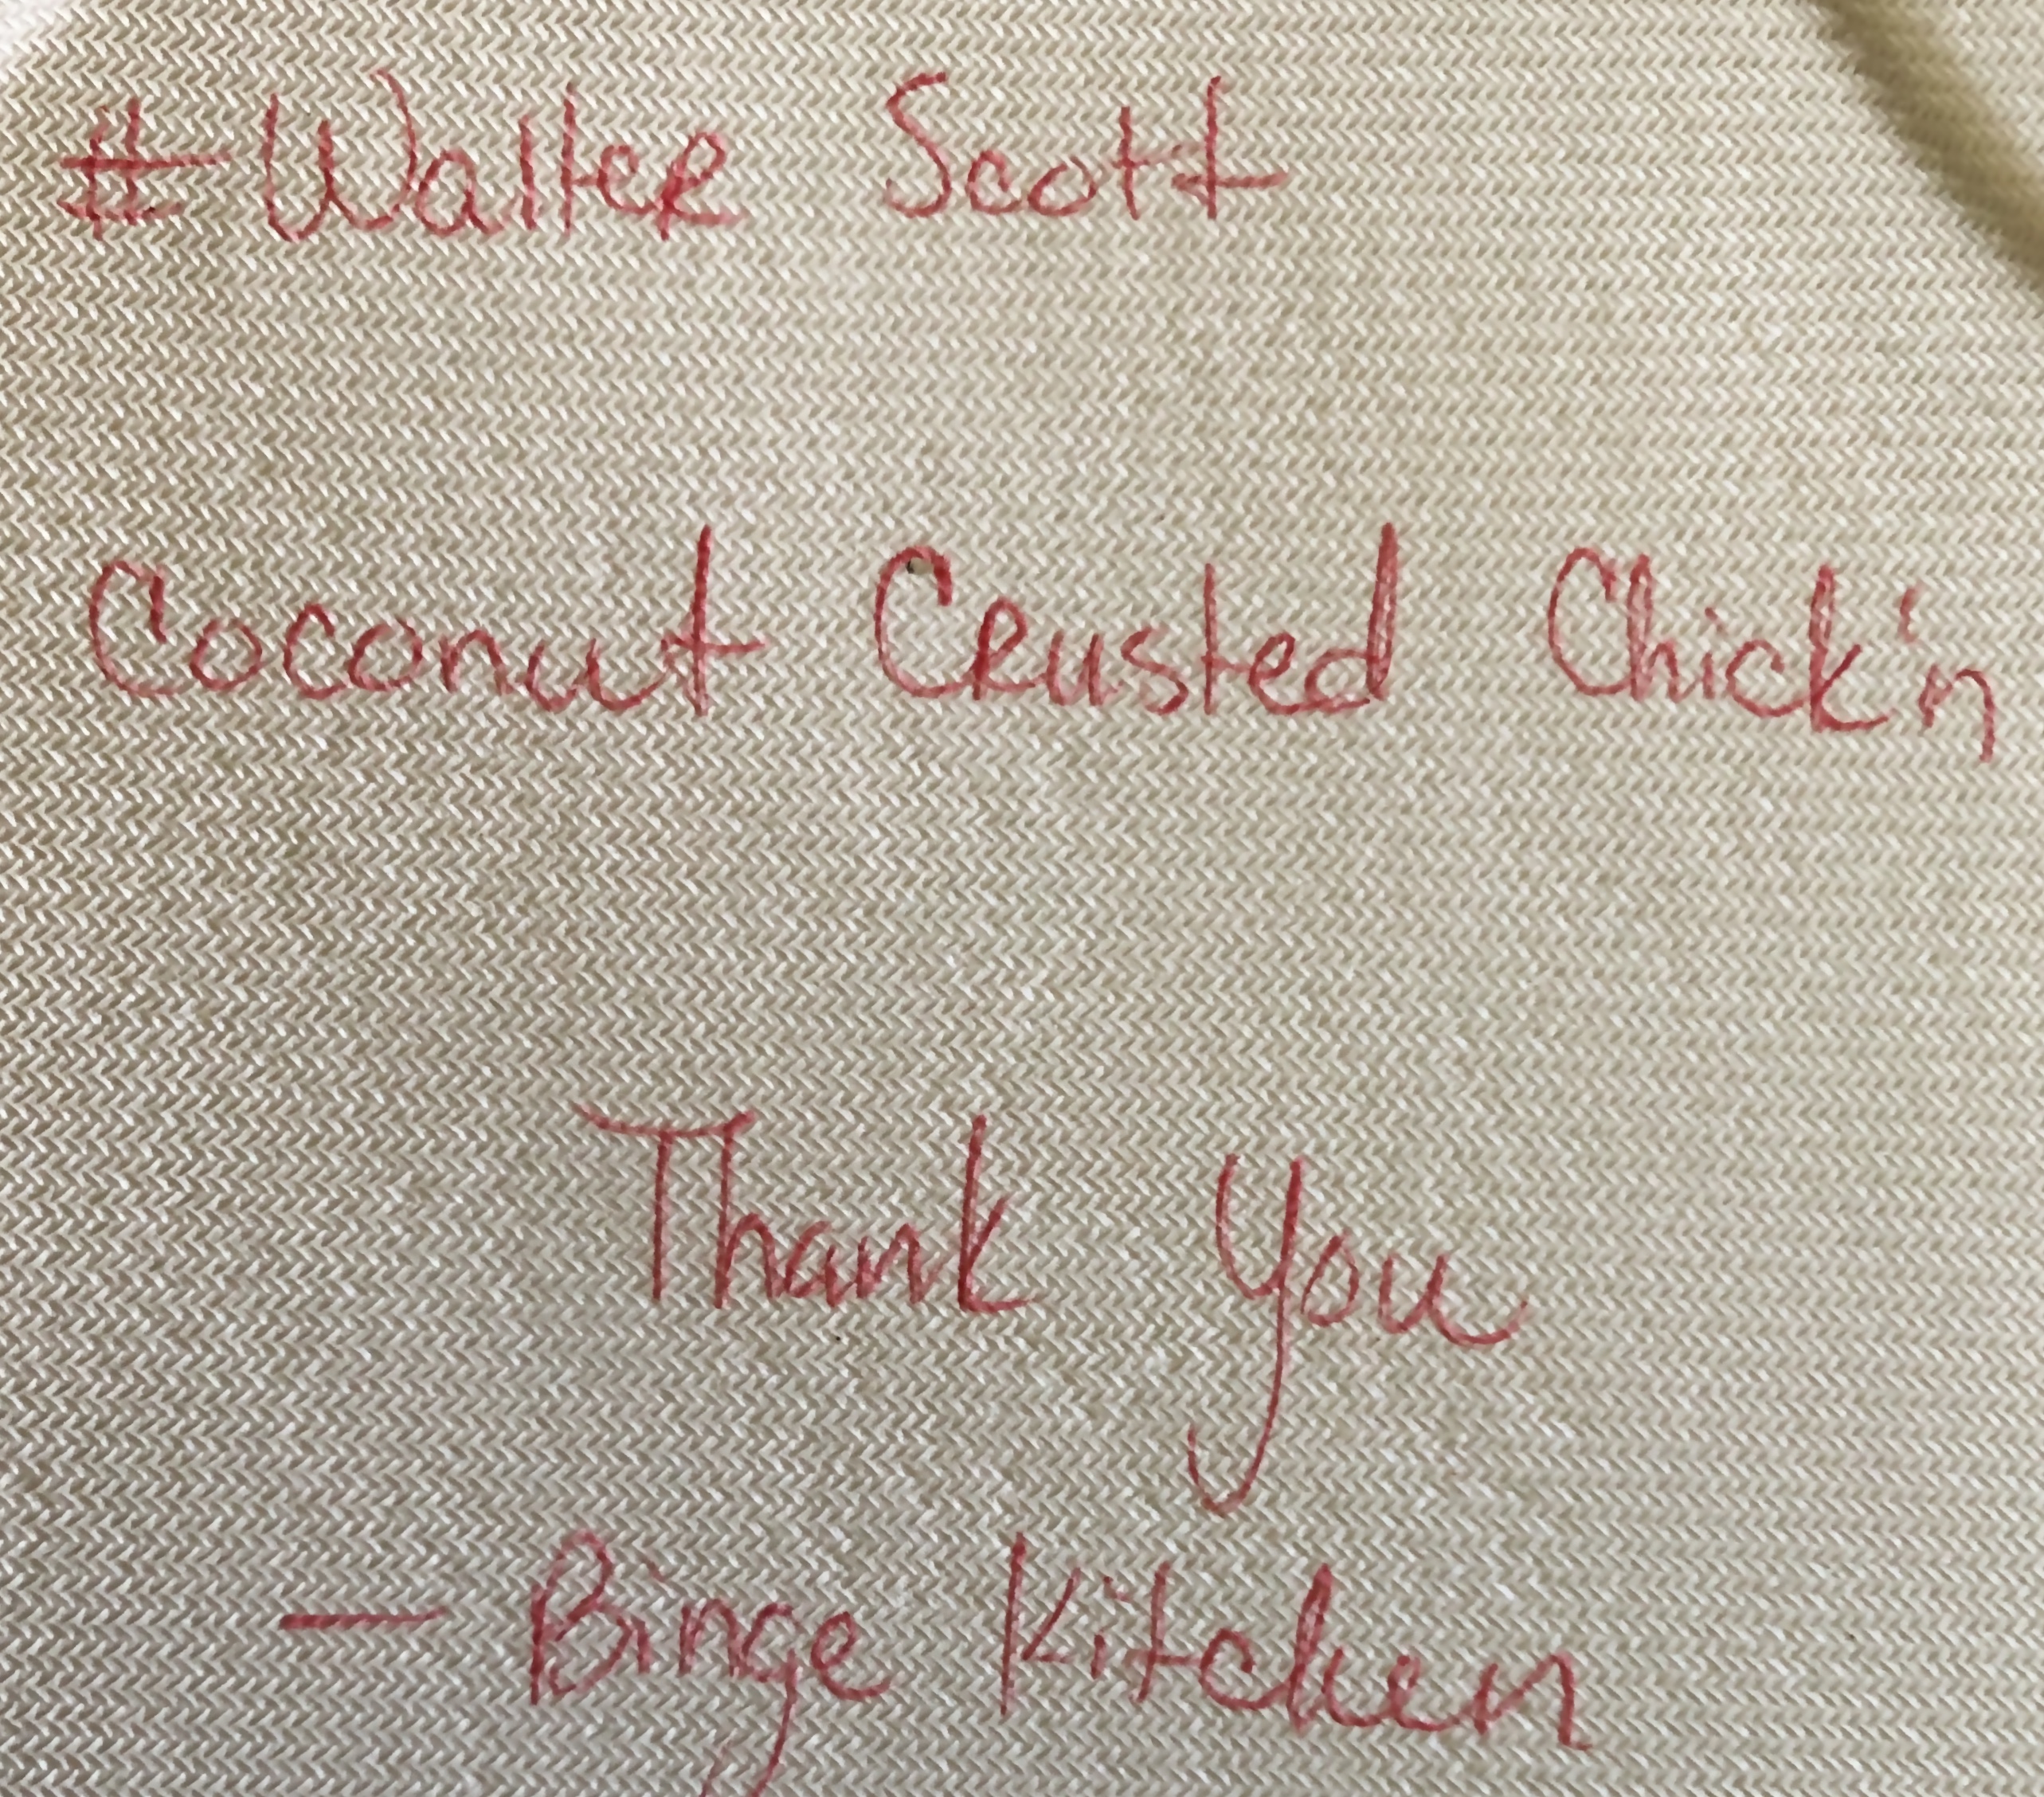 # Walter Scott
Coconut Crusted Chick'n
Thank You
— Binge Kitchen